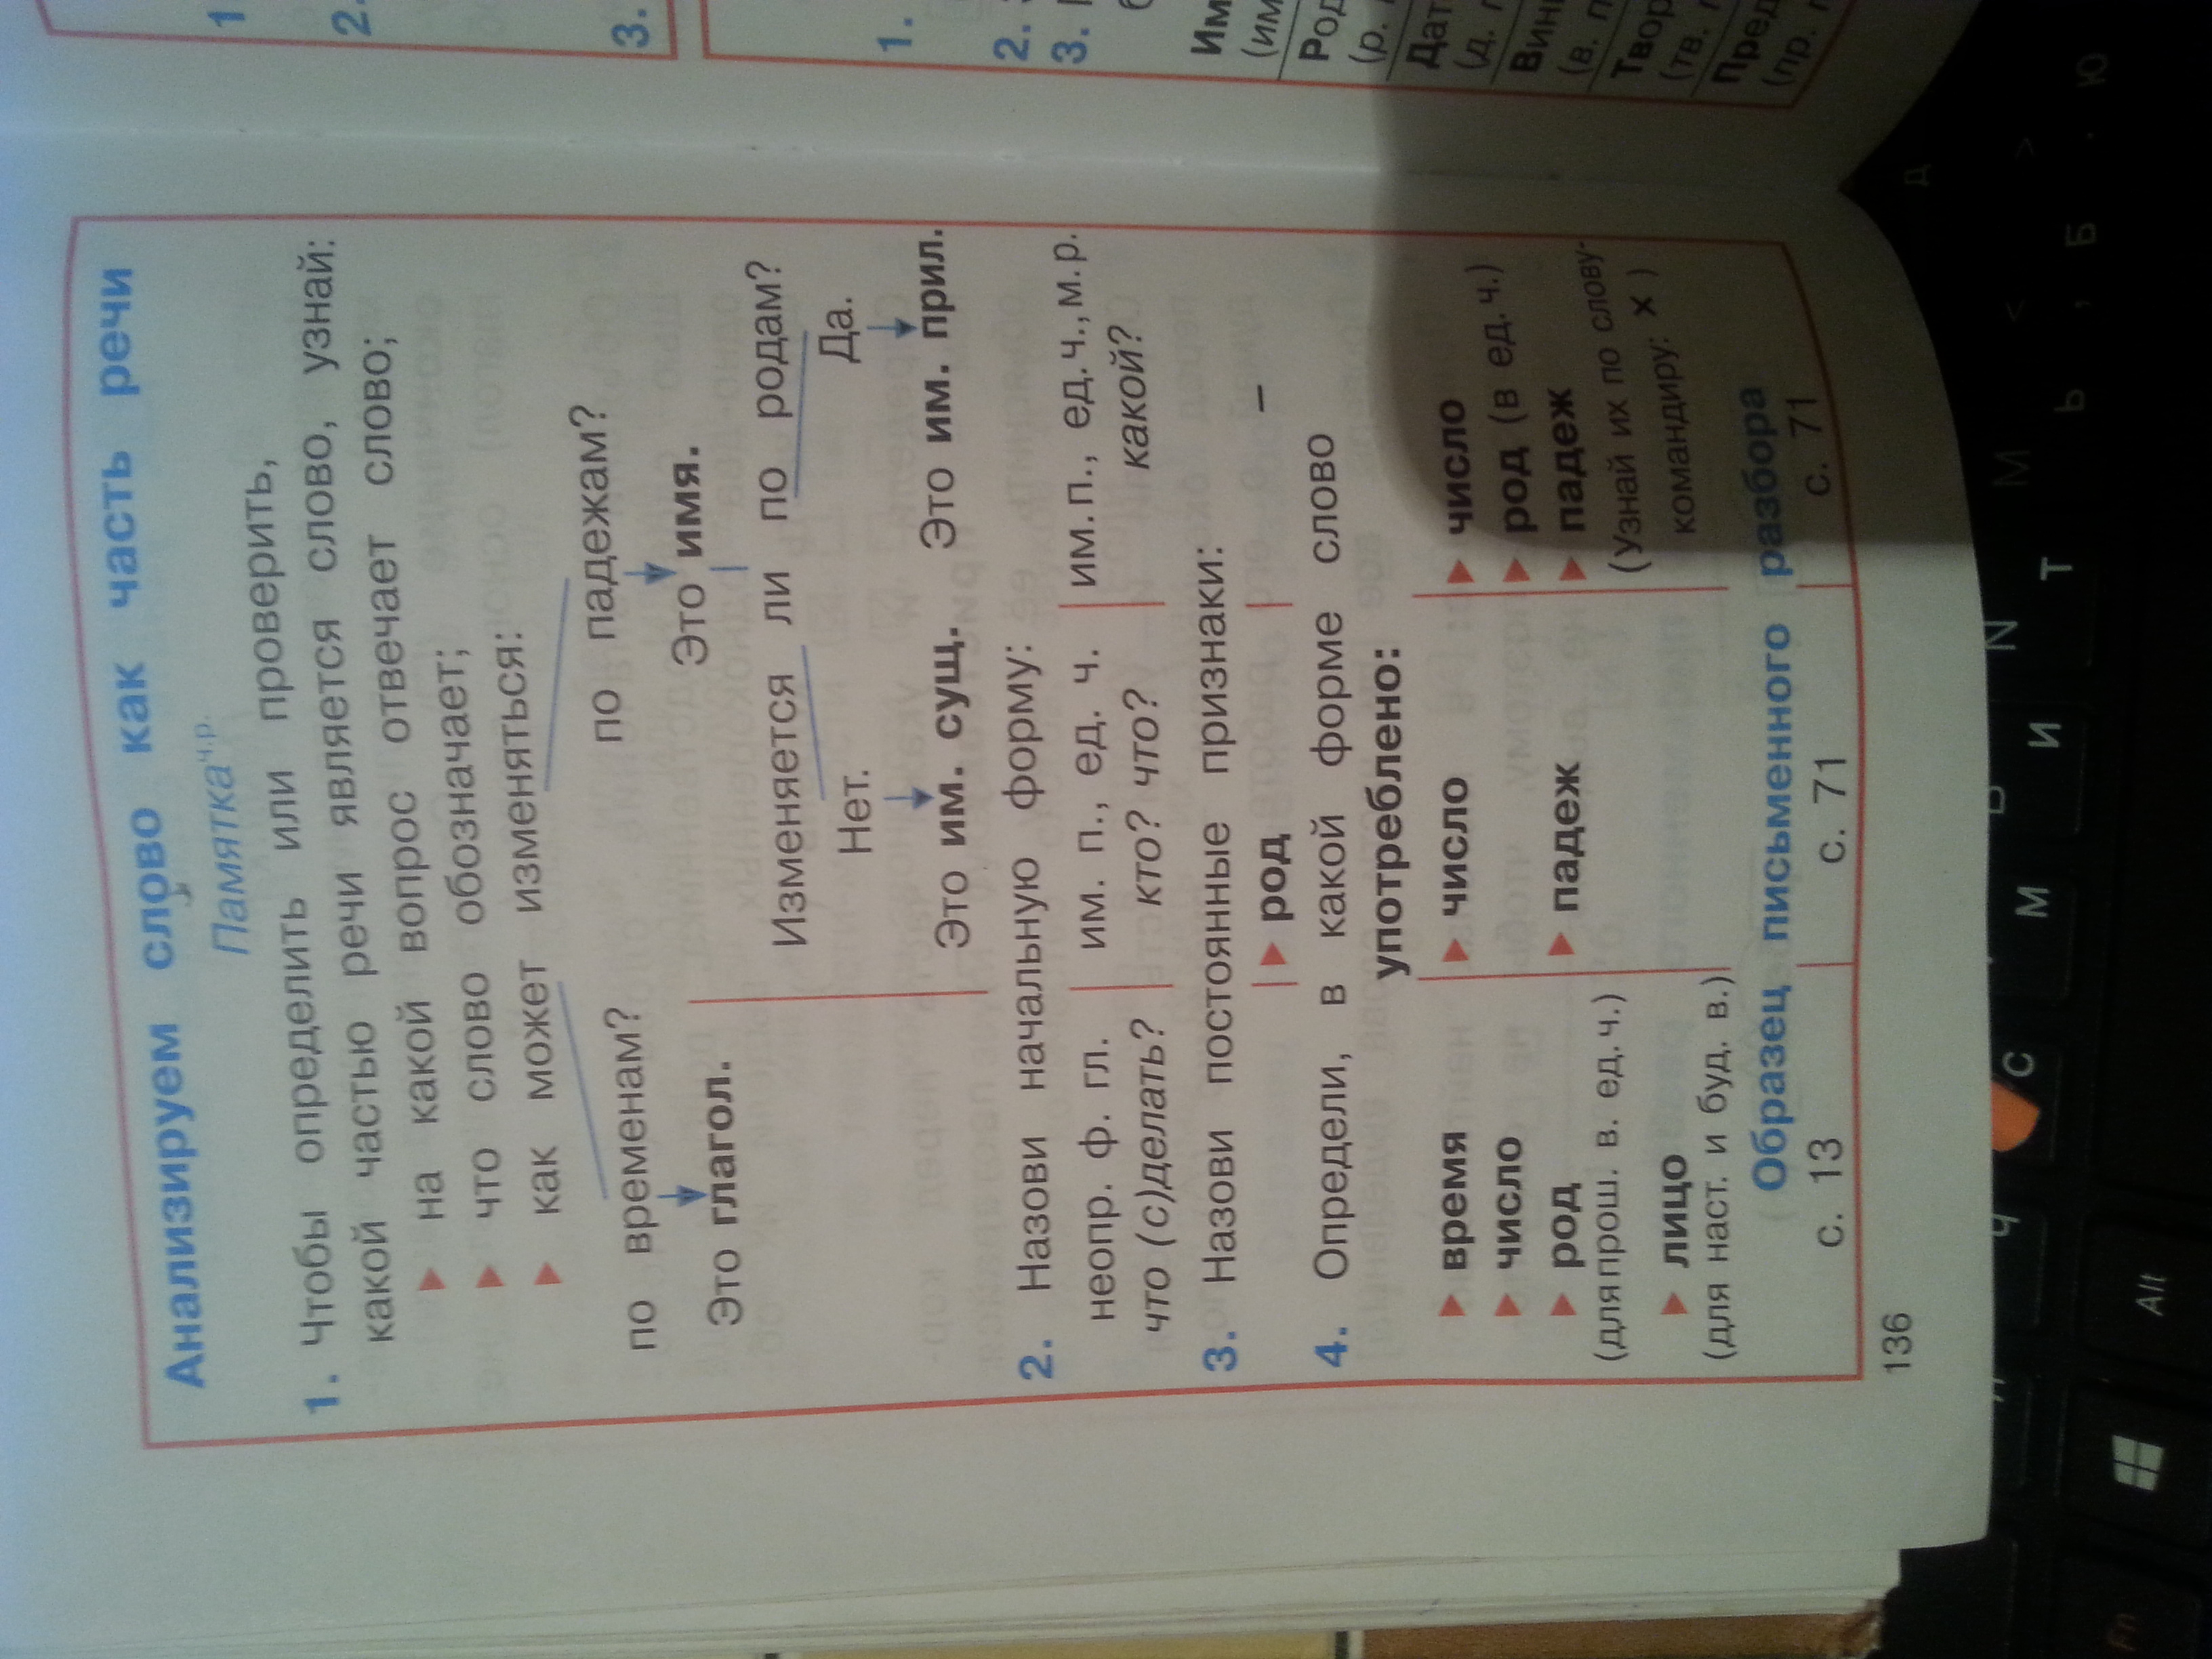 Анализируем слово как часть речи
Памятка ч.р.
1. Чтобы определить или проверить,
какой частью речи является слово, узнай:
на какой вопрос отвечает слово;
что слово обозначает;
как может изменяться:
по временам? по падежам?
Это глагол. Это имя.
Изменяется ли по родам?
Нет. Да.
Это им. сущ. Это им. прил.
2. Назови начальную форму:
неопр. ф. гл. им. п., ед. ч. им. п., ед. ч., м. р.
что (с)делать? кто? что? какой?
3. Назови постоянные признаки:
род –
4. Определи, в какой форме слово
употреблено:
время число число
число род (в ед. ч.)
род падеж падеж
(для прош. в. ед. ч.) (Узнай их по слову-
лицо командиру: х )
(для наст. и буд. в.)
Образец письменного разбора
с. 13 с. 71 с. 71
136
1
2.
3.
1.
2.
3.
Им
(им
Род
(р.
Дат
(д.
Вин
(в. п
Твор
(тв.
Пред
(пр.
Fn
Alt
Ч
С
М
И
Т
Ь
Б
Ю
N
M
B
Д
,
.
<
>